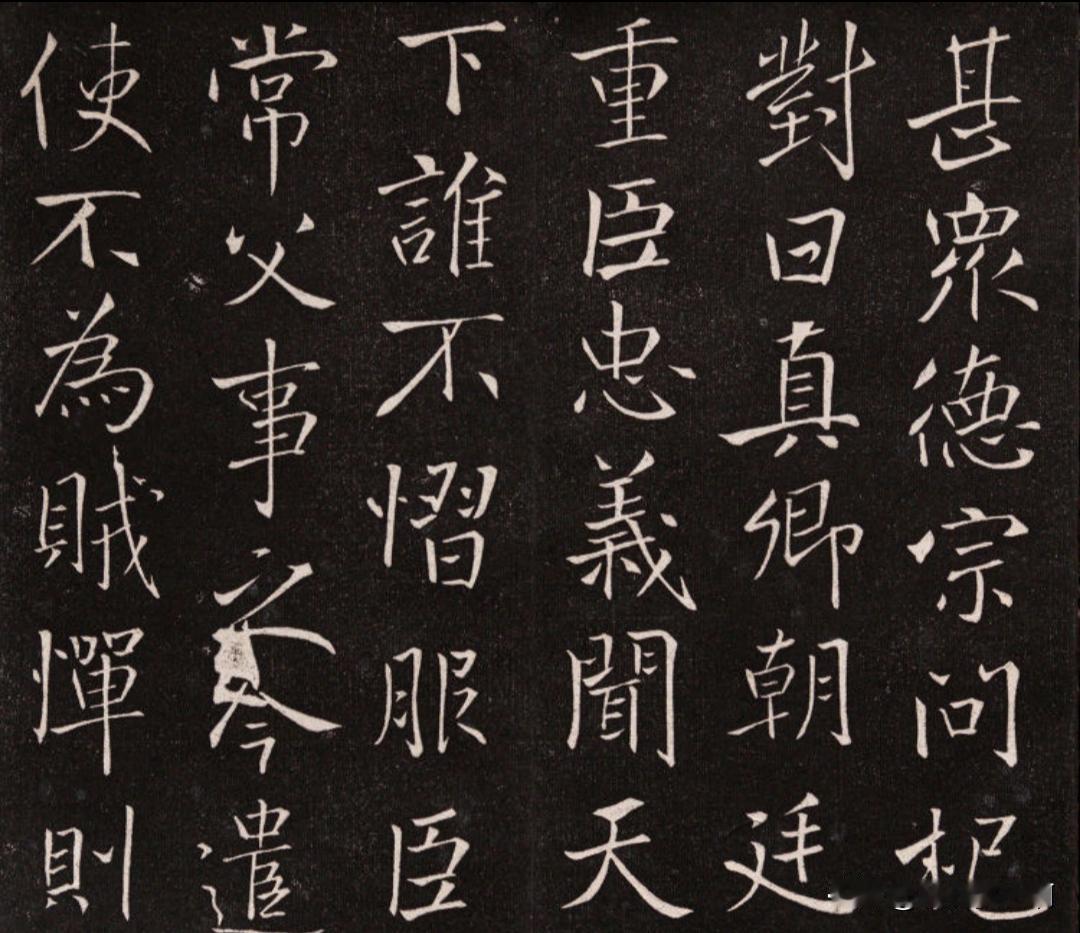 甚眾德宗問杞
對曰真卿朝廷
重臣忠義聞天
下誰不慴服臣
常父事之今遣
使不為賊憚則